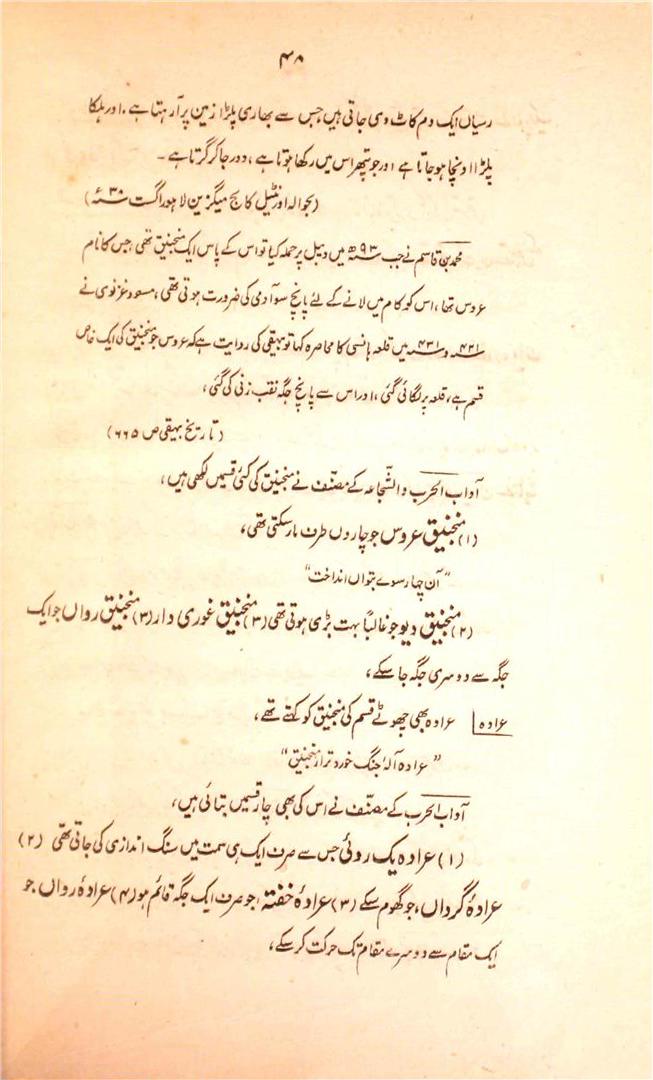 ۴۸
رسیاں ایک دم کاٹ دی جاتی ہیں جس سے بھاری پلڑا زمین پر آ رہتا ہے۔ اور ہلکا
پلڑا اونچا ہو جاتا ہے اور جو پتھر اس میں رکھا ہوتا ہے، دور جا کر گرتا ہے۔
(بحوالہ اورنٹیل کالج میگزین لاہور اگست ۳۰ء)
محمد بن قاسم نے جب ۹۳ھ میں دیبل پر حملہ کیا تو اس کے پاس ایک منجنیق تھی جس کا نام
عروس تھا، اس کو کام میں لانے کے لئے پانچ سو آدمی کی ضرورت ہوتی تھی، مسعود غزنوی نے
۴۲۱ و ۴۳۱ میں قلعہ ہانسی کا محاصرہ کیا تو بیہقی کی روایت ہے کہ عروس جو منجنیق کی ایک خاص
قسم ہے، قلعہ پر لگائی گئی، اور اس سے پانچ جگہ نقب زنی کی گئی،
(تاریخ بیہقی ص ۶۶۵)
آداب الحرب والشجاعہ کے مصنّف نے منجنیق کی کئی قسمیں لکھی ہیں،
(۱) منجنیق عروس جو چاروں طرف مار سکتی تھی،
"آن چہار سوے بتواں انداخت"
(۲) منجنیق دیو جو غالباً بہت بڑی ہوتی تھی (۳) منجنیق غوری دار (۳) منجنیق رواں جو ایک
جگہ سے دوسری جگہ جا سکے،
عرادہ عرادہ بھی چھوٹے قسم کی منجنیق کو کہتے تھے،
"عرادہ آلۂ جنگ خورد تر از منجنیق"
آداب الحرب کے مصنّف نے اس کی بھی چار قسمیں بتائی ہیں،
(۱) عرادہ یک روئی جس سے صرف ایک ہی سمت میں سنگ اندازی کی جاتی تھی (۲)
عرادۂ گرداں، جو گھوم سکے (۳) عرادۂ خفتہ، جو صرف ایک جگہ قائم ہو (۴) عرادۂ رواں جو
ایک مقام سے دوسرے مقام تک حرکت کر سکے،